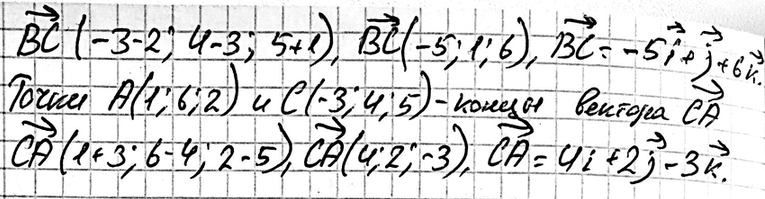 B⃗C⃗ (-3-2; 4-3; 5+1), B⃗C⃗(-5; 1; 6), B⃗C⃗ = -5i⃗+j⃗+6k⃗.
Точки A(1; 6; 2) и C(-3; 4; 5) - концы вектора C⃗A⃗
C⃗A⃗ (1+3; 6-4; 2-5), C⃗A⃗(4; 2; -3), C⃗A⃗ = 4i+2j⃗-3k⃗.